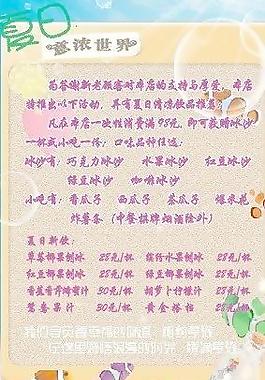 夏日
意浓世界
为答谢新老顾客对本店的支持与厚爱，本店
特推出以下活动，具有夏日清凉饮品推荐：
凡在本店一次性消费满98元，即可获赠冰沙
一杯或小吃一份；口味品种任选：
冰沙有：巧克力冰沙 水果冰沙 红豆冰沙
绿豆冰沙 咖啡冰沙
小吃有：香瓜子 西瓜子 茶瓜子 爆米花
炸薯条（中餐棋牌烟酒除外）
夏日新饮：
草莓椰果刨冰 28元/杯 缤纷水果刨冰 28元/杯
红豆椰果刨冰 28元/杯 绿豆椰果刨冰 28元/杯
香蕉香芋鲜蜜汁 30元/杯 胡萝卜柠檬汁 28元/杯
鸳鸯果汁 30元/杯 黄金搭档 28元/杯